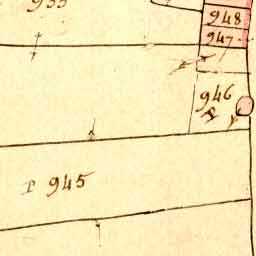 948
947
946
P 945